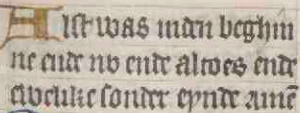 Alst was inden beghin
ne ende nv ende altoes ende
ewelike sonder eynde amē